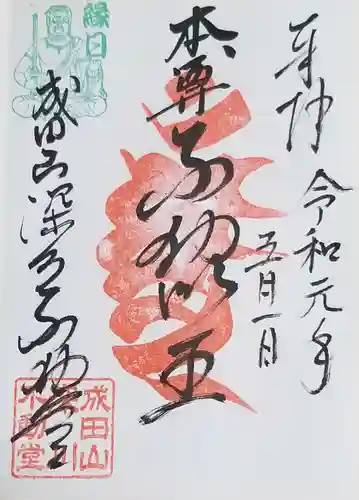 奉拝 令和元年
五月一日
本尊 不動明王
縁日
成田山深川不動堂
成田山
深川
不動堂